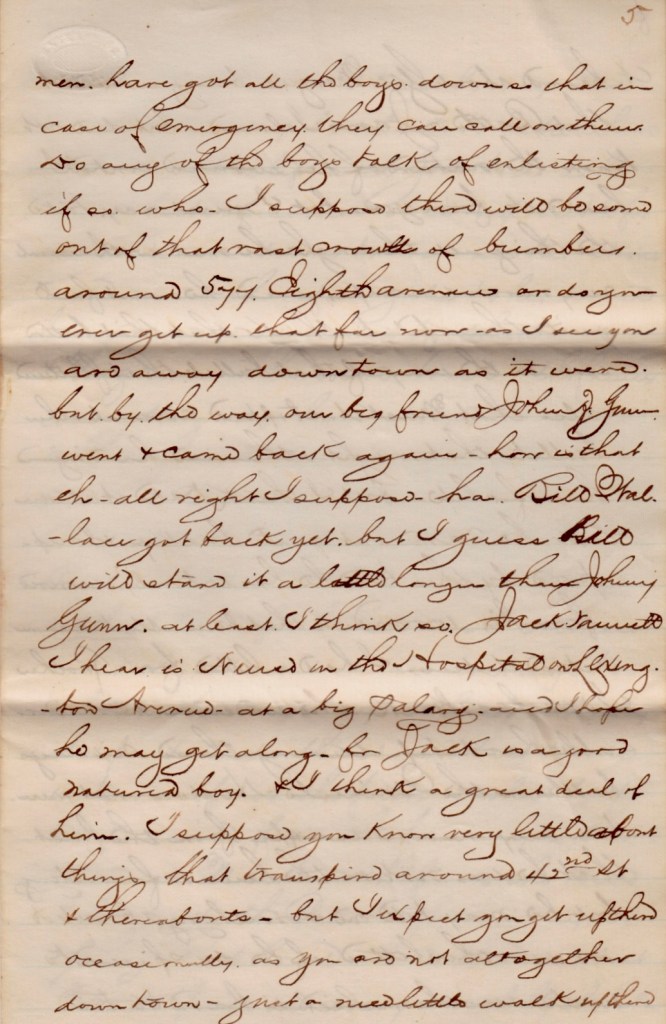 5
men. have got all the boys. down so that in
case of emergency. they can call on them.
Do any of the boys talk of enlisting
if so. who - I suppose there will be some
out of that vast crowd of bumbers.
around 577. Eighth avenue or do you
ever get up. that far now - as I see you
are away down town as it were.
but by. the way. our big friend John Gunn
went & came back again - how is that
eh - all right I suppose - ha. Bill Wal-
-lace got back yet. but I guess Bill
will stand it a little longer than Johny
Gunn. at least. I think so. Jack
I hear is Nurse in the Hospital on Lexing-
-ton Avenue - at a big Salary. - and I hope
he may get along - for Jack is a good
natured boy. & I think a great deal of
him. I suppose you know very little about
things that transpire around 42nd St
& thereabouts - but I expect you get up there
occasionally. as you are not altogether
down town - just a nice little walk up there